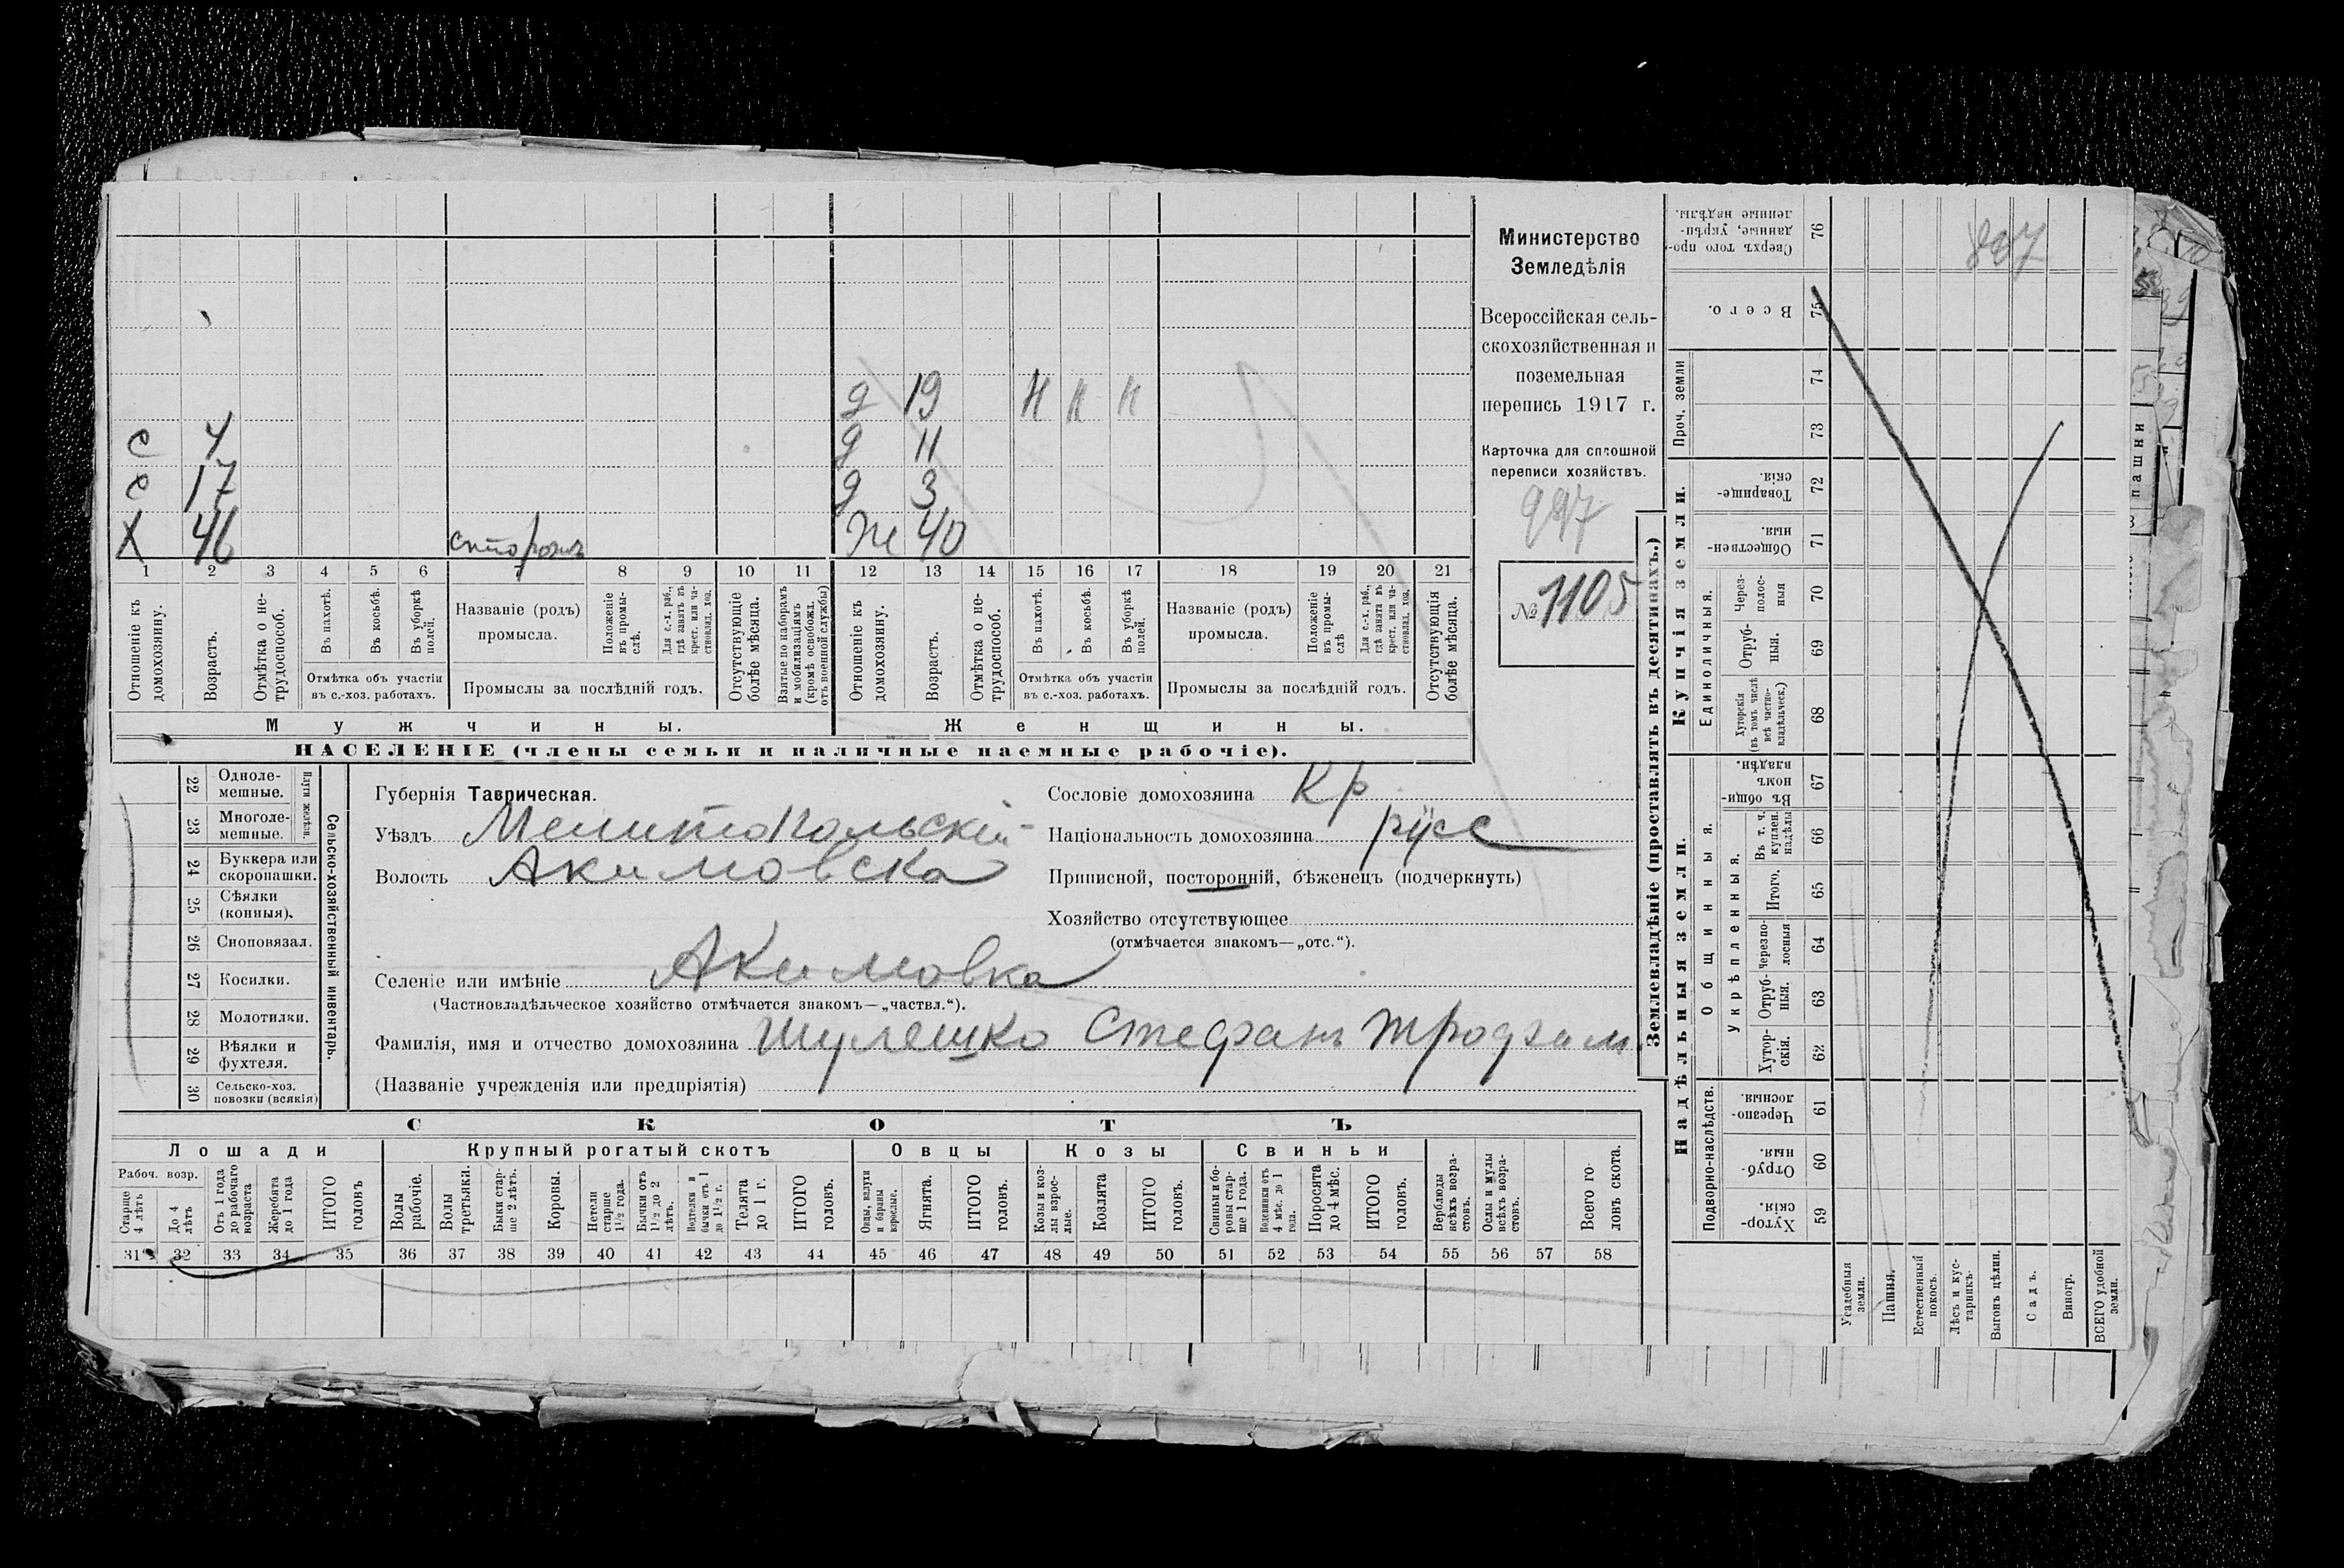 д 19 н н н
с 4 д 11
с 17 д 3
х 46 сторожъ ж 40
1 2 3 4 5 6 7 8 9 10 11 12 13 14 15 16 17 18 19 20 21
Отношеніе къ домохозяину.
Возрастъ.
Отмѣтка о не-
трудоспособ.
Въ пахотѣ.
Въ косьбѣ.
Въ уборкѣ
полей.
Отмѣтка объ участіи
въ с.-хоз. работахъ.
Названіе (родъ)
промысла.
Положеніе
въ промы-
слѣ.
Для с.-х. раб.,
гдѣ занятъ въ
крест. или ча-
стновлад. хоз.
Промыслы за послѣдній годъ.
Отсутствующіе
болѣе мѣсяца.
Взятые по наборамъ
и мобилизаціямъ
(кромѣ освобожд.
отъ военной службы)
Отношеніе къ
домохозяину.
Возрастъ.
Отмѣтка о не-
трудоспособ.
Въ пахотѣ.
Въ косьбѣ.
Въ уборкѣ
полей.
Отмѣтка объ участіи
въ с.-хоз. работахъ.
Названіе (родъ)
промысла.
Положеніе
въ промы-
слѣ
Для с.-х. раб.,
гдѣ занята въ
крест. или ча-
стновлад. хоз.
Промыслы за послѣдній годъ.
Отсутствующія
болѣе мѣсяца.
Мужчины. Женщины.
НАСЕЛЕНІЕ (члены семьи и наличные наемные рабочіе).
Министерство
Земледѣлія
Всероссійская сель-
скохозяйственная и
поземельная
перепись 1917 г.
Карточка для сплошной
переписи хозяйствъ.
997
№ 1105
22 Одноле-
мешные.
23 Многоле-
мешные.
Плуги желѣзн.
24 Буккера или
скоропашки.
25 Сѣялки
(конныя).
26 Сноповязал.
27 Косилки.
28 Молотилки.
29 Вѣялки и
фухтеля.
30 Сельско-хоз.
повозки (всякія)
Сельско-хозяйственный инвентарь.
Губернія Таврическая.
Уѣздъ Мелитопольскій
Волость Акимовска
Селеніе или имѣніе Акимовка
(Частновладѣльческое хозяйство отмѣчается знакомъ—„частвл.“).
Фамилія, имя и отчество домохозяина Шулешко Стефанъ
(Названіе учрежденія или предпріятія)
Сословіе домохозяина Кр
Національность домохозяина русс
Приписной, посторонній, бѣженецъ (подчеркнуть)
Хозяйство отсутствующее
(отмѣчается знакомъ—„отс.“).
СКОТЪ
Лошади Крупный рогатый скотъ Овцы Козы Свиньи
Рабоч. возр.
Старше
4 лѣтъ
До 4
лѣтъ
Отъ 1 года
до рабочаго
возраста
Жеребята
до 1 года
ИТОГО
головъ
Волы
рабочіе.
Волы
третьяки.
Быки стар-
ше 2 лѣтъ.
Коровы.
Нетели
старше
1½ года.
Бычки отъ
1½ до 2
лѣтъ.
Нетелки и
бычки отъ 1
до 1½ г.
Телята
до 1 г.
ИТОГО
головъ.
Овцы, валухи
и бараны
взрослые.
Ягнята.
ИТОГО
головъ.
Козы и коз-
лы взрос-
лые.
Козлята
ИТОГО
головъ.
Свиньи и бо-
ровы стар-
ше 1 года.
Подсвинки отъ
4 мѣс. до 1
года.
Поросята
до 4 мѣс.
ИТОГО
головъ.
Верблюды
всѣхъ возра-
стовъ.
Ослы и мулы
всѣхъ возра-
стовъ.
Всего го-
ловъ скота.
31 32 33 34 35 36 37 38 39 40 41 42 43 44 45 46 47 48 49 50 51 52 53 54 55 56 57 58
Землевладѣніе (проставлять въ десятинахъ.)
Надѣльныя земли. Купчія земли.
Подворно-наслѣдств.
Общинныя.
Укрѣпленныя.
Единоличныя.
Проч. земли
Сверхъ того про-
данные, укрѣп-
ленные надѣлы. 76
Всего. 75
74
73
Товарище-
скія 72
Обществен-
ныя. 71
Через-
полос-
ныя 70
Отруб-
ныя. 69
Хуторскія
(въ томъ числѣ
всѣ частно-
владѣльческ.) 68
Въ общин-
номъ
владѣн. 67
Въ т. ч.
куплен.
надѣлы 66
Итого. 65
Черезпо-
лосныя 64
Отруб-
ныя. 63
Хутор-
скія. 62
Черезпо-
лосныя. 61
Отруб-
ныя. 60
Хутор-
скія. 59
Усадебныя
земли.
Пашня.
Естественный
покосъ.
Лѣсъ и кус-
тарникъ.
Выгонъ цѣлин.
Садъ.
Виногр.
ВСЕГО удобной
земли.
пашни